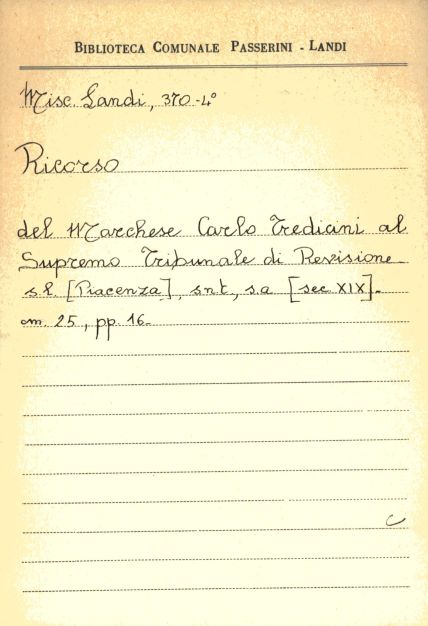 BIBLIOTECA COMUNALE PASSERINI - LANDI
Misc. Landi, 370-4°
Ricorso
del Marchese Carlo Trediani al
Supremo Tribunale di Revisione-
s.l. [Piacenza], s.n.t., s.a. [sec. XIX].-
cm. 25, pp. 16.-
C